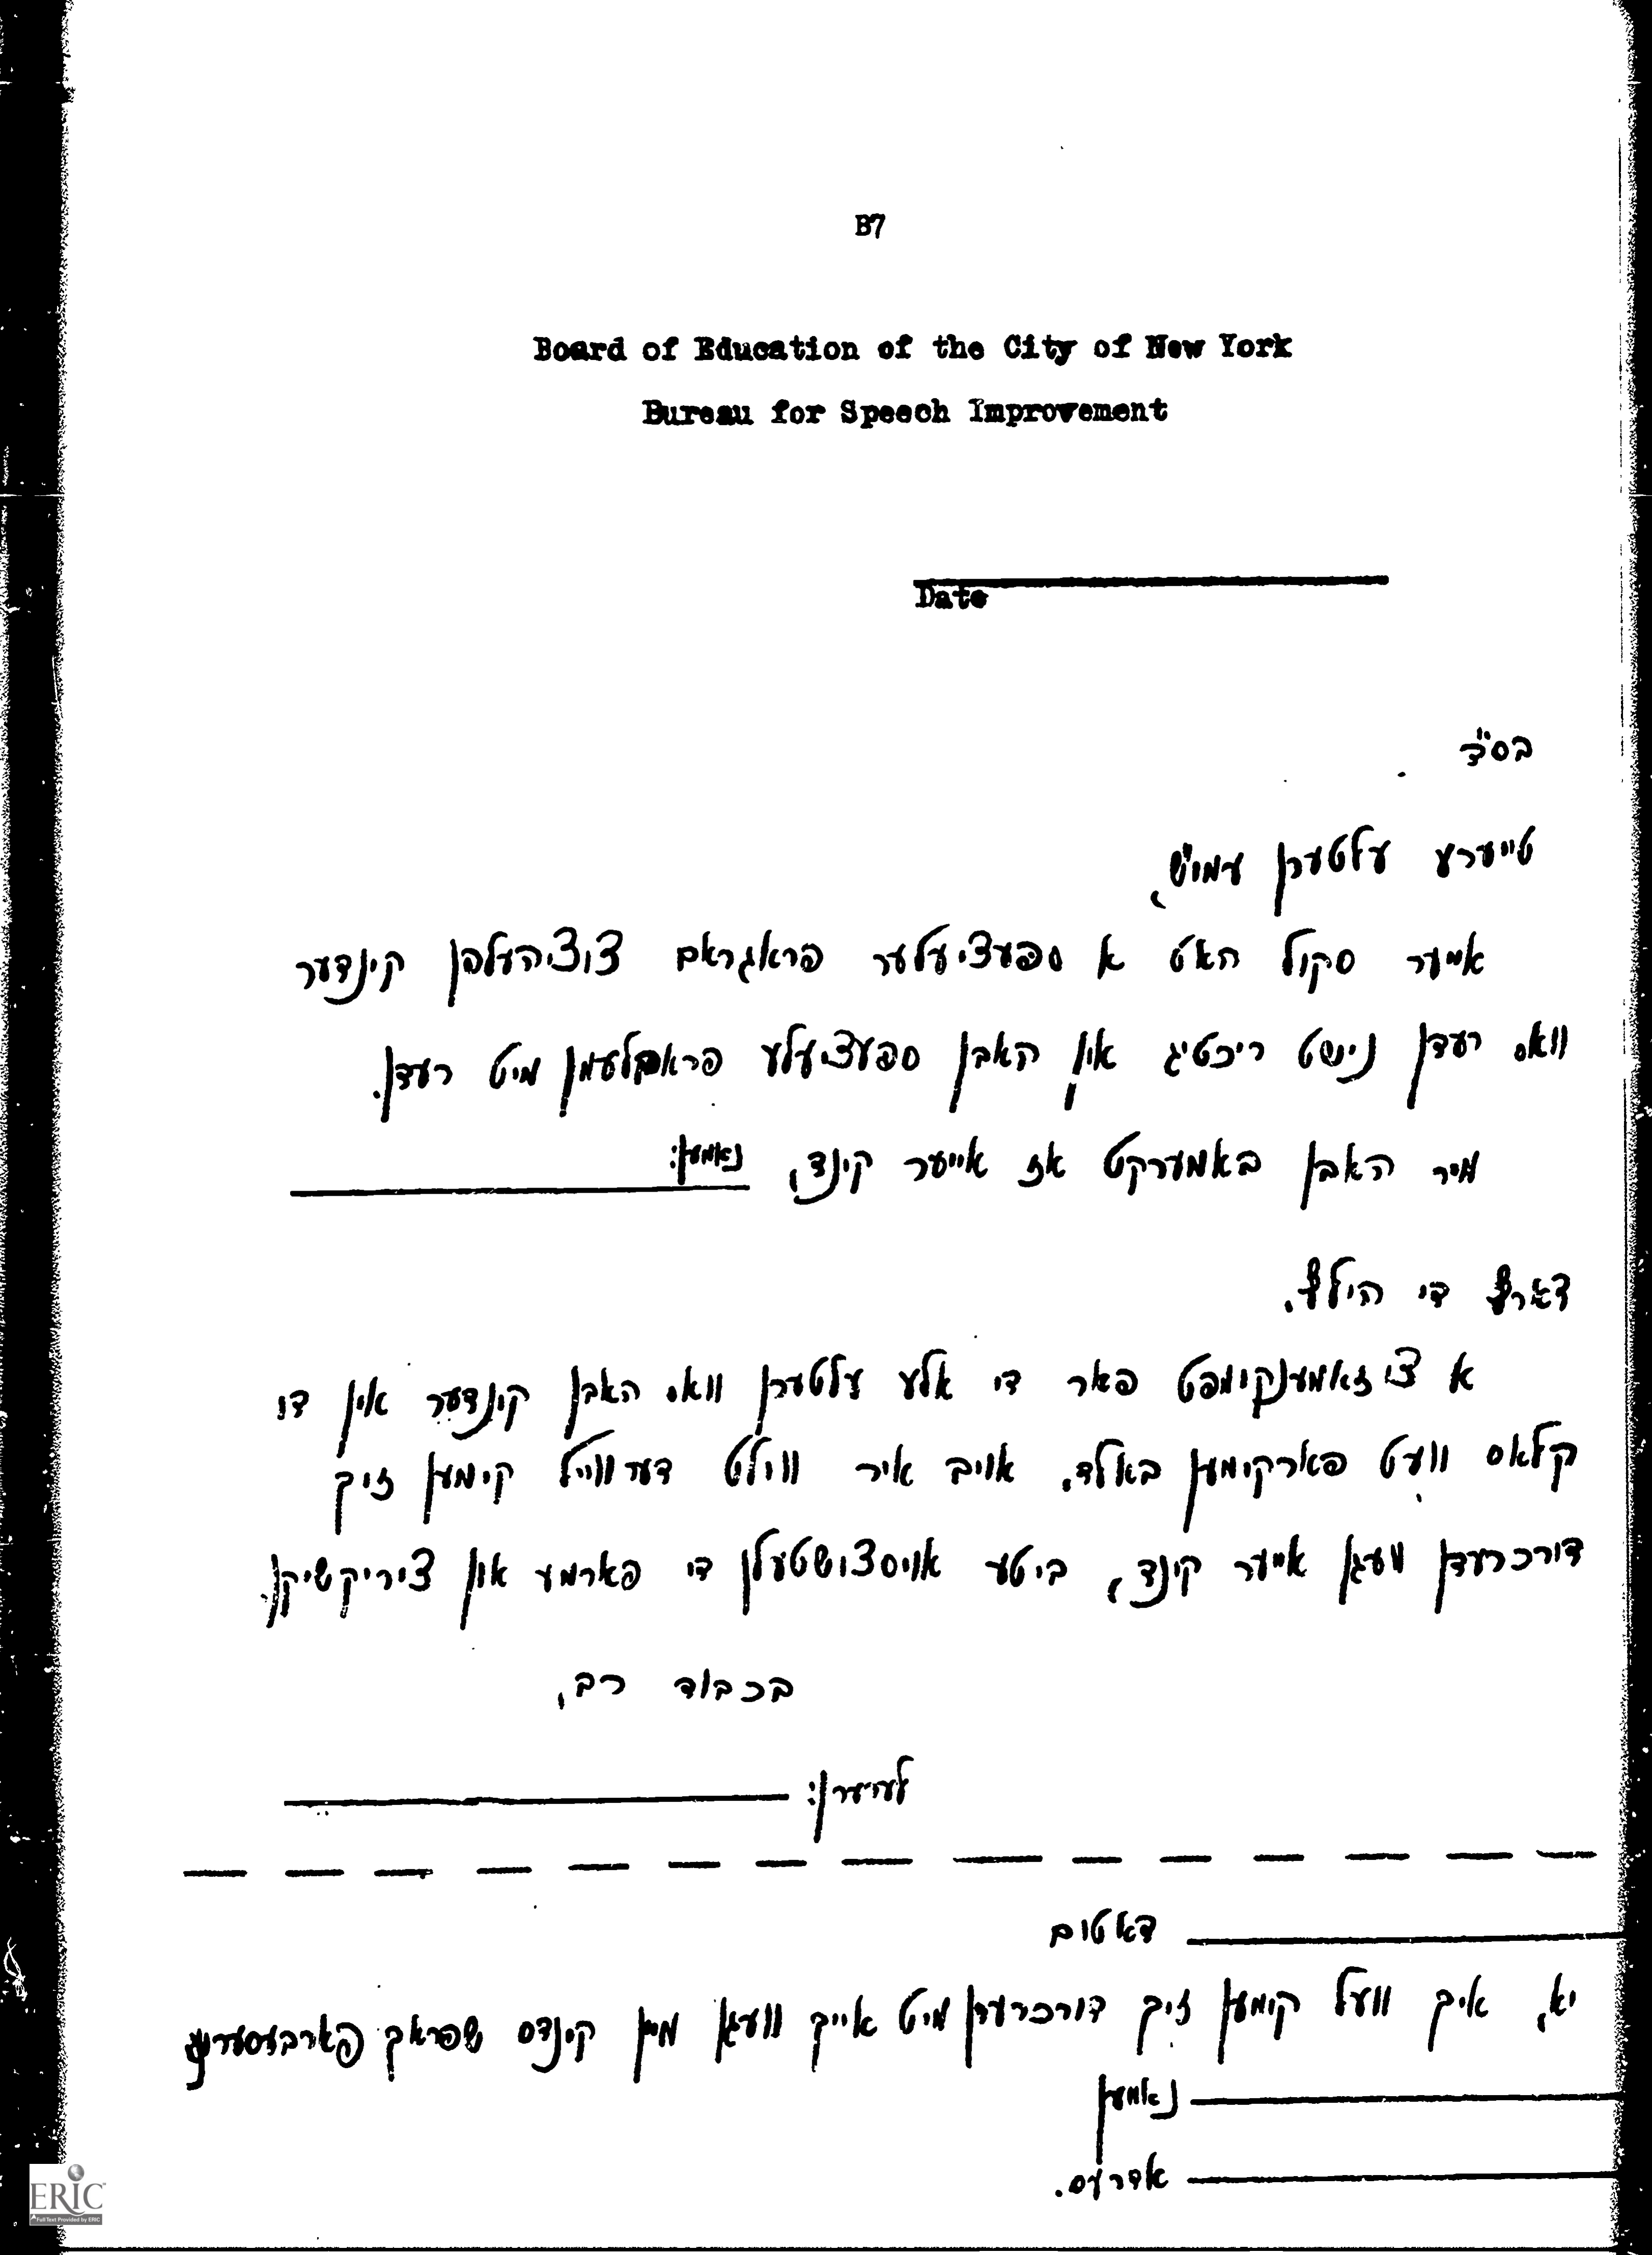 B7
Board of Education of the City of New York
Bureau for Speech Improvement
Date
בס"ד
טייערע עלטערן עמו"ש,
אייער סקול האט א ספעציעלער פראגראם צוציהעלפן קינדער
וואס רעדן נישט ריכטיג אין האבן ספעציעלע פראבלעמן מיט רעדן.
מיר האבן באמערקט אז אייער קינד, נאמען:
דארף די הילף.
א צוזאמענקומפט פאר די אלע עלטערן וואס האבן קינדער אין דו
קלאס וועט פארקימען באלד. אויב איר ווילט דערווייל קימען זיך
דורכרעדן וועגן אייער קינד, ביטע אויסצושטעלן די פארמע און ציריקשיקן.
בכבוד רב,
לעהיערן:
דאטום
יא, איך וועל קומען זיך דורכרעדן מיט אייך וועגן מיין קינדס שפראך פארבעסערונג
נאמען
אדרעס.
ERIC
Full Text Provided by ERIC